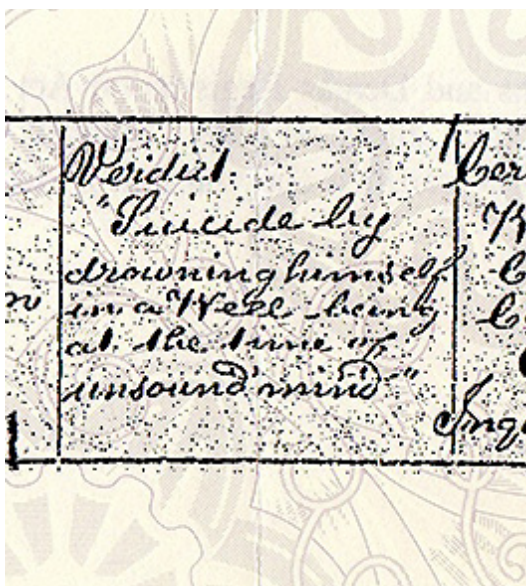 Verdict
"Suicide by
drowning himself
in a Well being
at the time of
unsound mind"